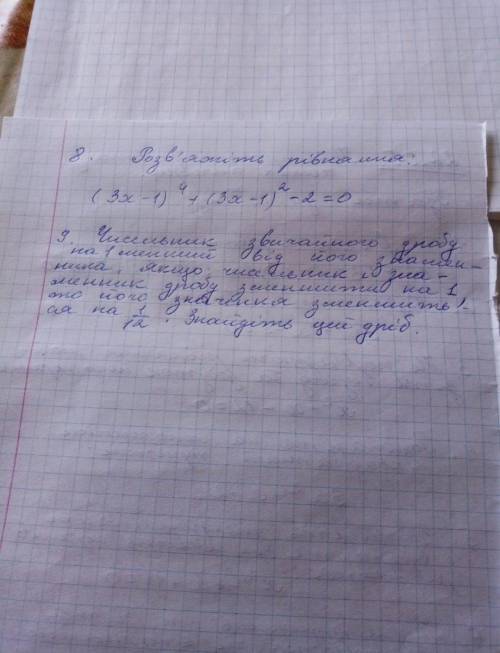 8. Розв'яжіть рівняння:
(3x-1)⁴+(3x-1)²-2=0
9. Чисельник звичайного дробу
на 1 менший від його знамен-
ника. Якщо чисельник і зна-
менник дробу зменшити на 1
то його значення зменшить!-
ся на 1/12. Знайдіть цей дріб.